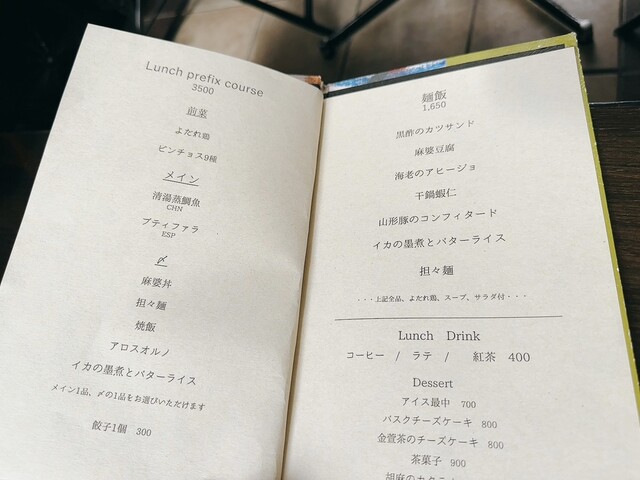 Lunch prefix course
3500
前菜
よだれ鶏
ピンチョス9種
メイン
清湯蒸鯛魚
CHN
ブティファラ
ESP
〆
麻婆丼
担々麺
焼飯
アロスオルノ
イカの墨煮とバターライス
メイン1品、〆の1品をお選びいただけます
餃子1個 300
麺飯
1,650
黒酢のカツサンド
麻婆豆腐
海老のアヒージョ
干鍋蝦仁
山形豚のコンフィタード
イカの墨煮とバターライス
担々麺
・・・上記全品、よだれ鶏、スープ、サラダ付・・・
Lunch Drink
コーヒー / ラテ / 紅茶 400
Dessert
アイス最中 700
バスクチーズケーキ 800
金萱茶のチーズケーキ 800
茶菓子 900